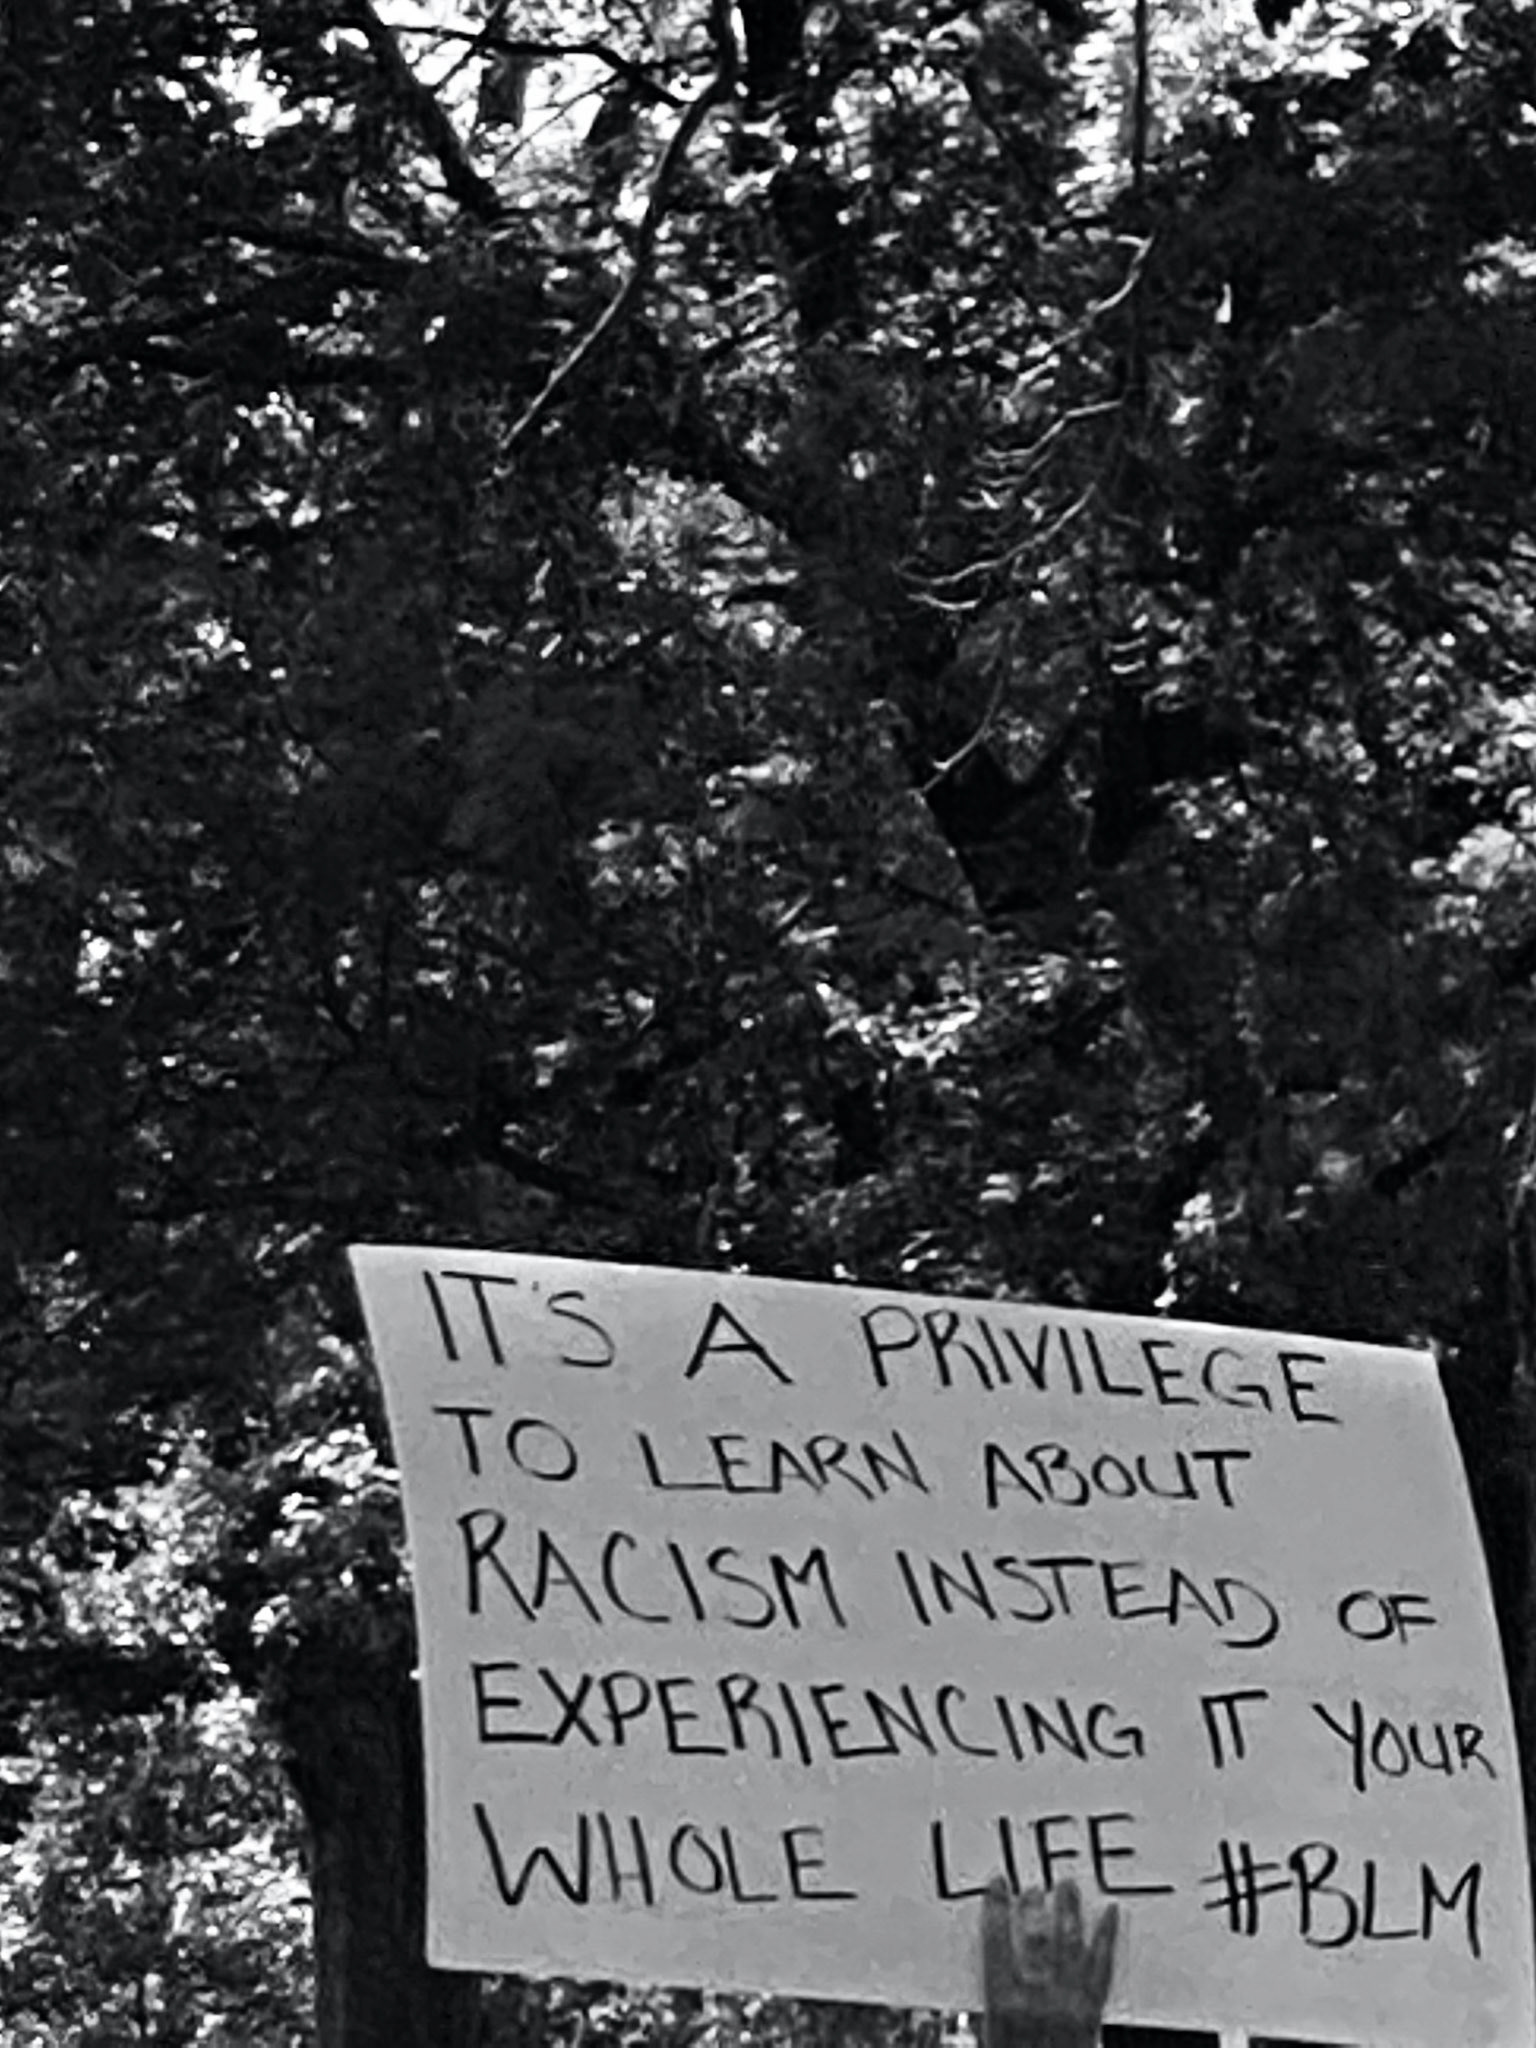 IT'S A PRIVILEGE
TO LEARN ABOUT
RACISM INSTEAD OF
EXPERIENCING IT YOUR
WHOLE LIFE #BLM